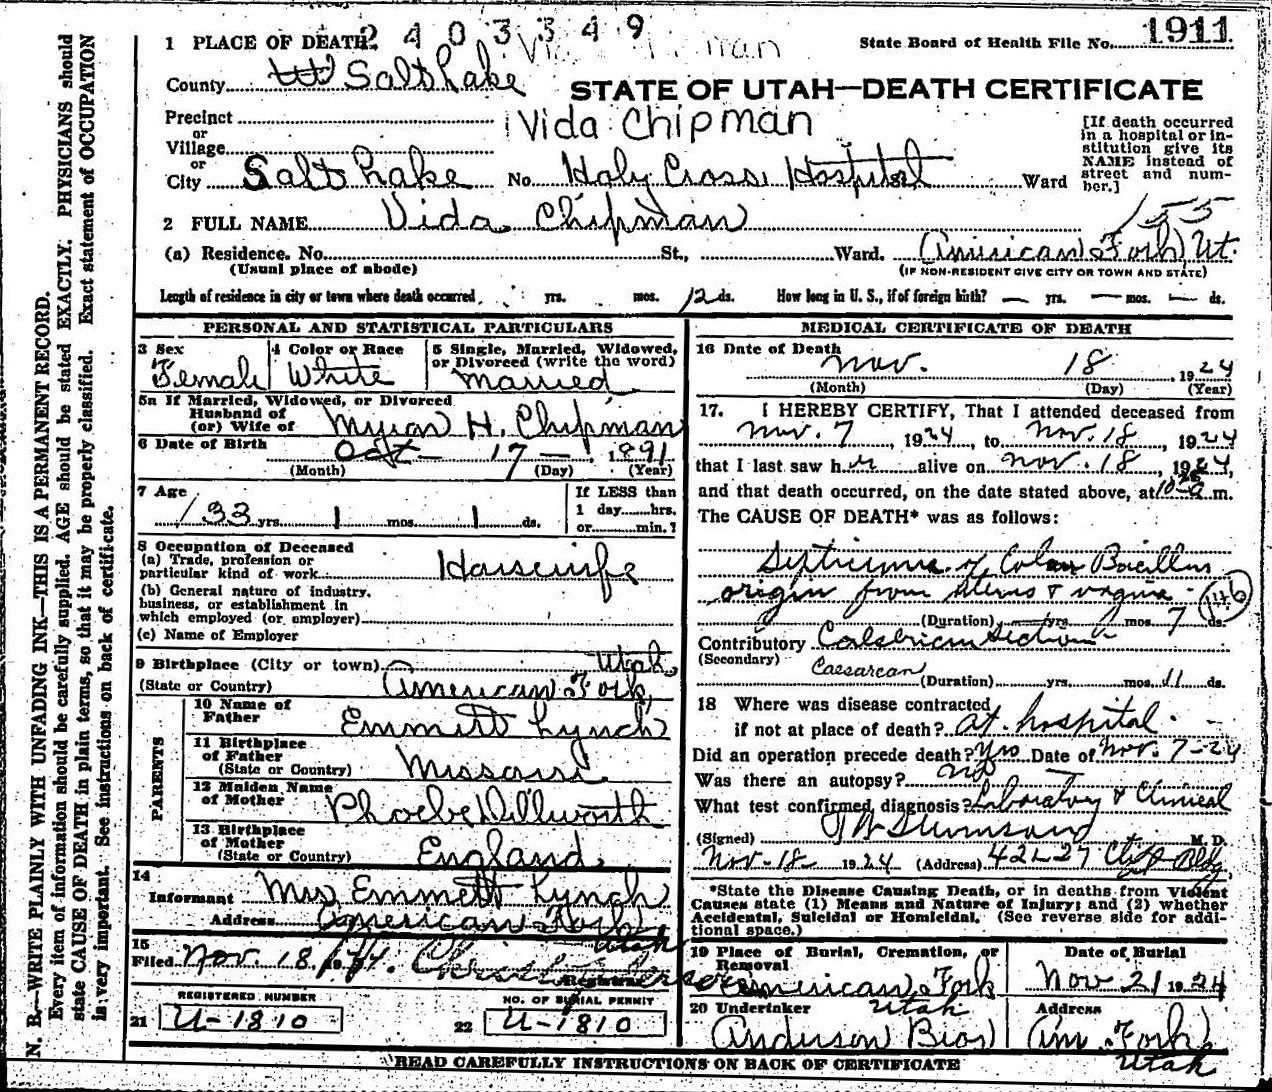 2403349
1 PLACE OF DEATH
State Board of Health File No. 1911
County Salt Lake
STATE OF UTAH—DEATH CERTIFICATE
Precinct
Vida Chipman
or
Village
or
City Salt Lake No. Holy Cross Hospital Ward
[If death occurred
in a hospital or in-
stitution give its
NAME instead of
street and num-
ber.]
2 FULL NAME Vida Chipman
155
(a) Residence. No. St., Ward. American Fork, Ut.
(Usual place of abode)
(IF NON-RESIDENT GIVE CITY OR TOWN AND STATE)
Length of residence in city or town where death occurred yrs. mos. 12 ds. How long in U. S., if of foreign birth? — yrs. — mos. — ds.
PERSONAL AND STATISTICAL PARTICULARS
3 Sex
Female
4 Color or Race
White
5 Single, Married, Widowed,
or Divorced (write the word)
Married
5a If Married, Widowed, or Divorced
Husband of
(or) Wife of Myron H. Chipman
6 Date of Birth Oct — 17 — 1891
(Month) (Day) (Year)
7 Age
33 yrs. 1 mos. 1 ds.
If LESS than
1 day......hrs.
or......min.?
8 Occupation of Deceased
(a) Trade, profession or
particular kind of work Housewife
(b) General nature of industry,
business, or establishment in
which employed (or employer)
(c) Name of Employer
9 Birthplace (City or town) Utah
(State or Country) American Fork,
PARENTS
10 Name of
Father Emmett Lynch
11 Birthplace
of Father
(State or Country) Missouri
12 Maiden Name
of Mother Phoebe Dillworth
13 Birthplace
of Mother
(State or Country) England
14
Informant Mrs Emmett Lynch
Address American Fork
Utah
15
Filed Nov. 18, 1924.
Registrar
REGISTERED NUMBER
21 U-1810
NO. OF BURIAL PERMIT
22 U-1810
MEDICAL CERTIFICATE OF DEATH
16 Date of Death
Nov. 18 1924
(Month) (Day) (Year)
17. I HEREBY CERTIFY, That I attended deceased from
Nov. 7, 1924, to Nov. 18, 1924
that I last saw her alive on Nov. 18, 1924,
and that death occurred, on the date stated above, at 10 25 a m.
The CAUSE OF DEATH* was as follows:
Septicemia of Colon Bacillus
origin from uterus & vagina 146
(Duration) yrs. mos. 7 ds.
Contributory Caesarean Section
(Secondary) Caesarean
(Duration) yrs. mos. 11 ds.
18 Where was disease contracted
if not at place of death? At hospital
Did an operation precede death? Yes Date of Nov. 7-24
Was there an autopsy? no
What test confirmed diagnosis? Laboratory & Clinical
(Signed) M. D.
Nov-18- 1924 (Address) 422-27 Clift Bldg
*State the Disease Causing Death, or in deaths from Violent
Causes state (1) Means and Nature of Injury; and (2) whether
Accidental, Suicidal or Homicidal. (See reverse side for addi-
tional space.)
19 Place of Burial, Cremation, or
Removal
American Fork
Utah
Date of Burial
Nov 21 1924
20 Undertaker
Anderson Bros
Address
Am. Fork,
Utah
READ CAREFULLY INSTRUCTIONS ON BACK OF CERTIFICATE
N. B.—WRITE PLAINLY WITH UNFADING INK—THIS IS A PERMANENT RECORD.
Every item of information should be carefully supplied. AGE should be stated EXACTLY. PHYSICIANS should
state CAUSE OF DEATH in plain terms, so that it may be properly classified. Exact statement of OCCUPATION
is very important. See instructions on back of certificate.